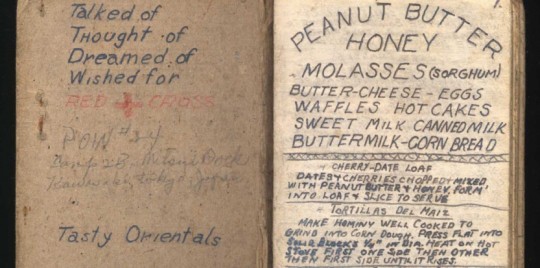 Talked of
Thought of
Dreamed of
Wished for
RED CROSS
POW #24
Tasty Orientals
1.
PEANUT BUTTER
HONEY
MOLASSES (SORGHUM)
BUTTER-CHEESE-EGGS
WAFFLES HOT CAKES
SWEET MILK CANNED MILK
BUTTERMILK-CORN BREAD
CHERRY-DATE LOAF
DATES & CHERRIES CHOPPED MIXED
WITH PEANUT BUTTER & HONEY. FORM
INTO LOAF & SLICE TO SERVE
TORTILLAS DEL MAIZ
MAKE HOMINY WELL COOKED TO
GRIND INTO CORN DOUGH. PRESS FLAT INTO
BLOCKS IN DIA. HEAT ON HOT
STOVE FIRST ONE SIDE THEN OTHER
THEN FIRST SIDE UNTIL IT RISES.